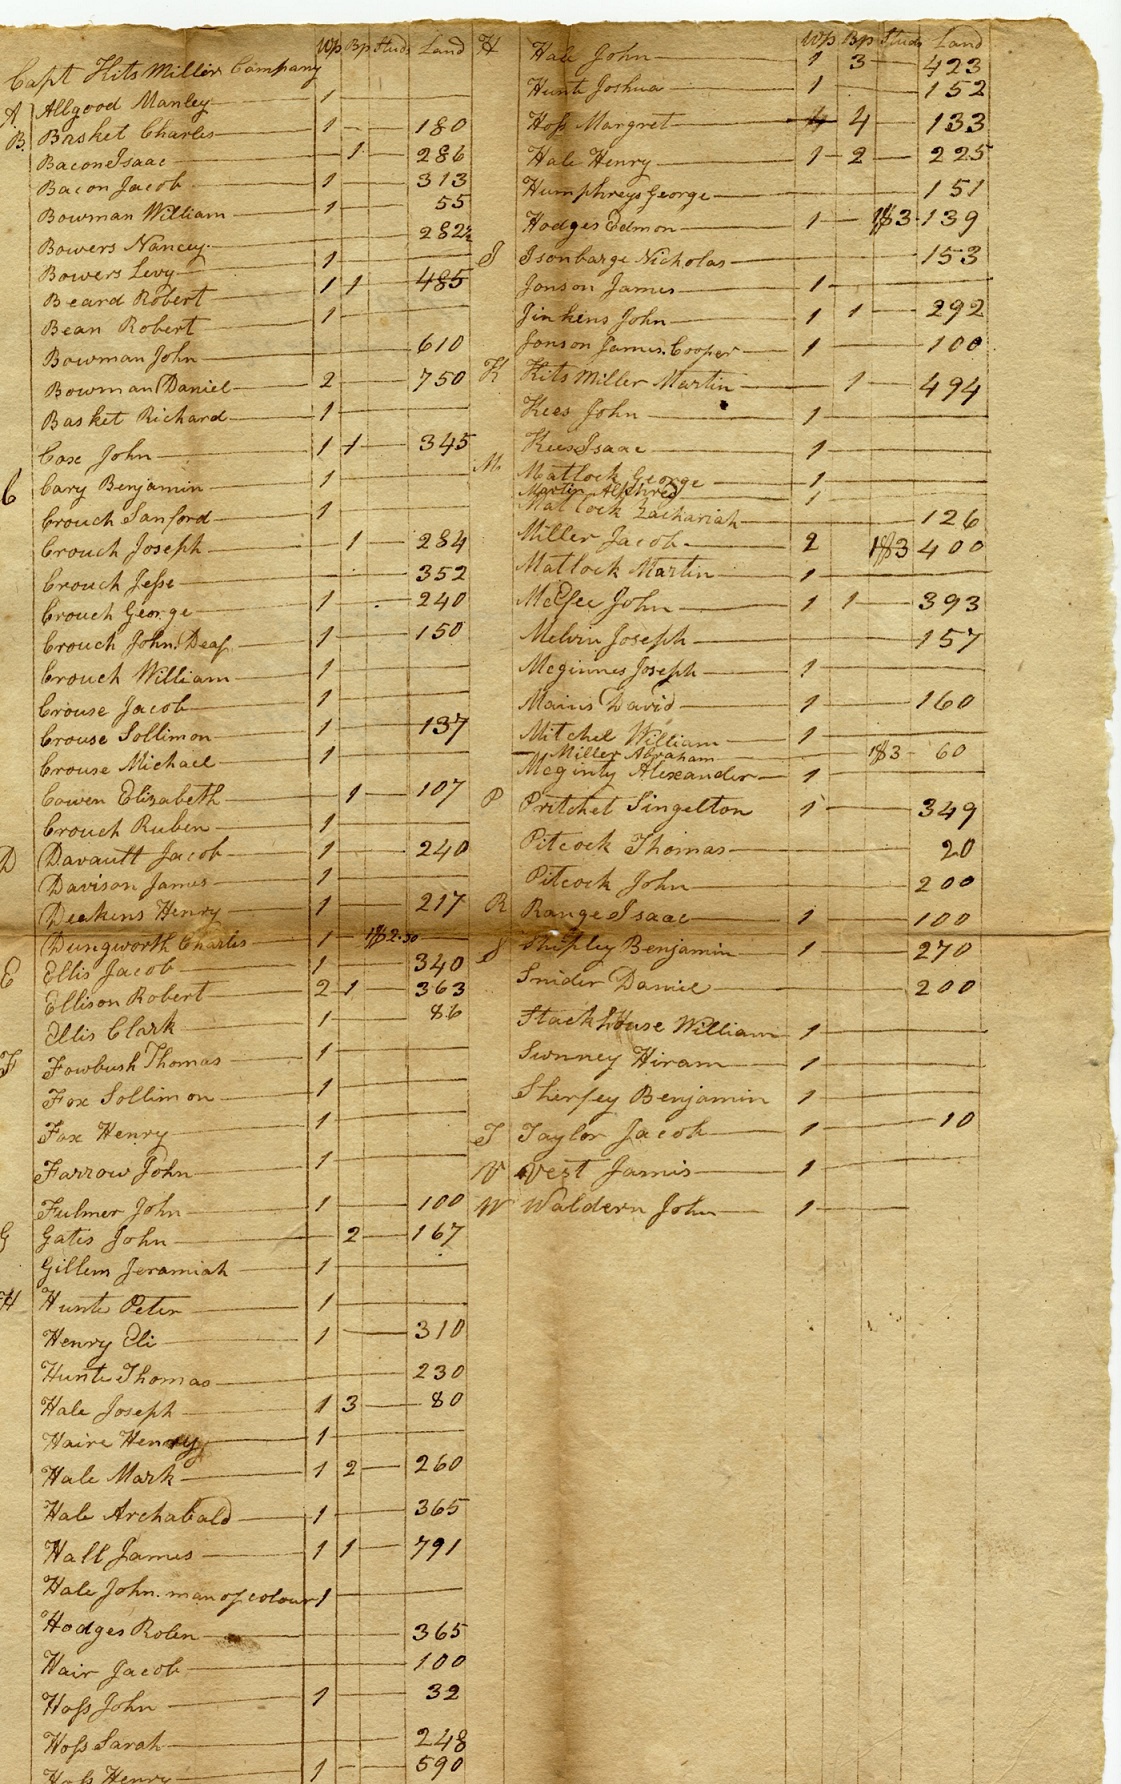 Wp Bp Studs Land
Capt Kits Miller Company
A Allgood Manley 1
B. Basket Charles 1 180
Bacon Isaac 1 286
Bacon Jacob 1 313
Bowman William 1 55
Bowers Nancey 282½
Bowers Levy 1
Beard Robert 1 1 485
Bean Robert 1
Bowman John 610
Bowman Daniel 2 750
Basket Richard 1
Cox John 1 1 345
C Cary Benjamin 1
Crouch Sanford 1
Crouch Joseph 1 284
Crouch Jesse 352
Crouch George 1 240
Crouch John. Deaf 1 150
Crouch William 1
Crouse Jacob 1
Crouse Sollimon 1 137
Crouse Michael 1
Cowen Elizabeth 1 107
Crouch Ruben 1
D Davault Jacob 1 240
Davison James 1
Deakins Henry 1 217
Dungworth Charles 1 1$2.50
E Ellis Jacob 1 340
Ellison Robert 2 1 363
Ellis Clark 1 86
F Fowbush Thomas 1
Fox Sollimon 1
Fox Henry 1
Farrow John 1
Fulmer John 1 100
G Gates John 2 167
Gillem Jeramiah 1
H Hunte Peter 1
Henry Eli 1 310
Hunte Thomas 230
Hale Joseph 1 3 80
Haire Henry 1
Hale Mark 1 2 260
Hale Archabald 1 365
Hall James 1 1 791
Hale John. man of colour 1
Hodges Roben 365
Hair Jacob 100
Hoss John 1 32
Hoss Sarah 248
Hoss Henry 1 590
Wp Bp Studs Land
H Hale John 1 3 423
Hunt Joshua 1 152
Hoss Margret 4 133
Hale Henry 1 2 225
Humphreys George 151
Hodges Edmon 1 1$3 139
I Isonbarge Nicholas 153
Jonson James 1
Jinkens John 1 1 292
Jonson James. Cooper 1 100
K Kits Miller Martin 1 494
Kees John 1
Kees Isaac 1
M Matlock George 1
Martin Alphred 1
Matlock Zachariah 126
Miller Jacob 2 1$3 400
Matlock Martin 1
McEfee John 1 1 393
Melvin Joseph 157
Mcginnes Joseph 1
Mains David 1 160
Mitchel William 1
Miller Abraham 1$3 60
Mcginty Alexander 1
P Pritchet Singelton 1 349
Pitcock Thomas 20
Pitcock John 200
R Range Isaac 1 100
S Shipley Benjamin 1 270
Snider Daniel 200
Stackhouse William 1
Swnney Hiram 1
Sherfey Benjamin 1
T Taylor Jacob 1 10
V Vest Jamis 1
W Waldern John 1